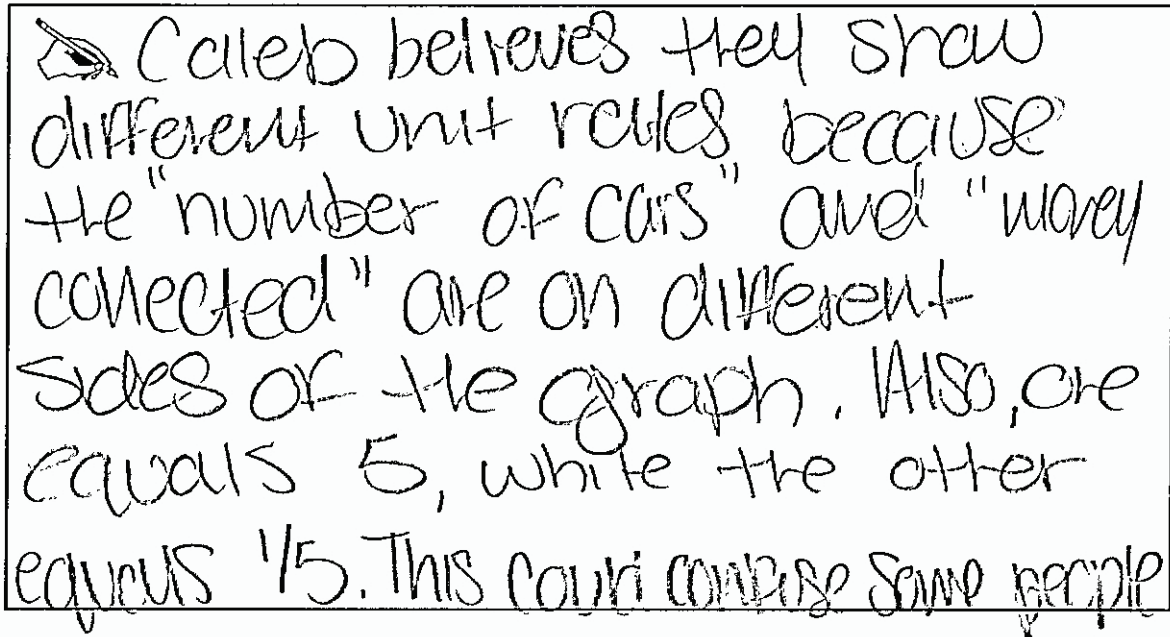 Caleb believes they show
different unit rates because
the "number of cars" and "money
collected" are on different
sides of the graph. Also, one
equals 5, while the other
equals 1/5. This could confuse some people